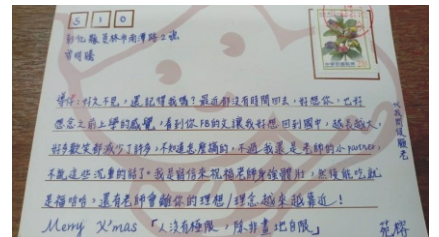 510
彰化縣員林市南潭路2號
導仔:好久不見,還記得我嗎?最近都沒有時間回去,好想你,也好
想念之前上學的感覺,看到你FB的文讓我好想回到國中,越長越大,
好多歡笑都減少了許多,不知道怎麼搞的,不過我還是老師的小partner,
不說這些沉重的話了。我是寫信來祝福老師身強體壯,然後能吃就
是福哈哈,還有老師會離你的理想/理念越來越靠近!
Merry X'mas 「人沒有極限,除非畫地自限」